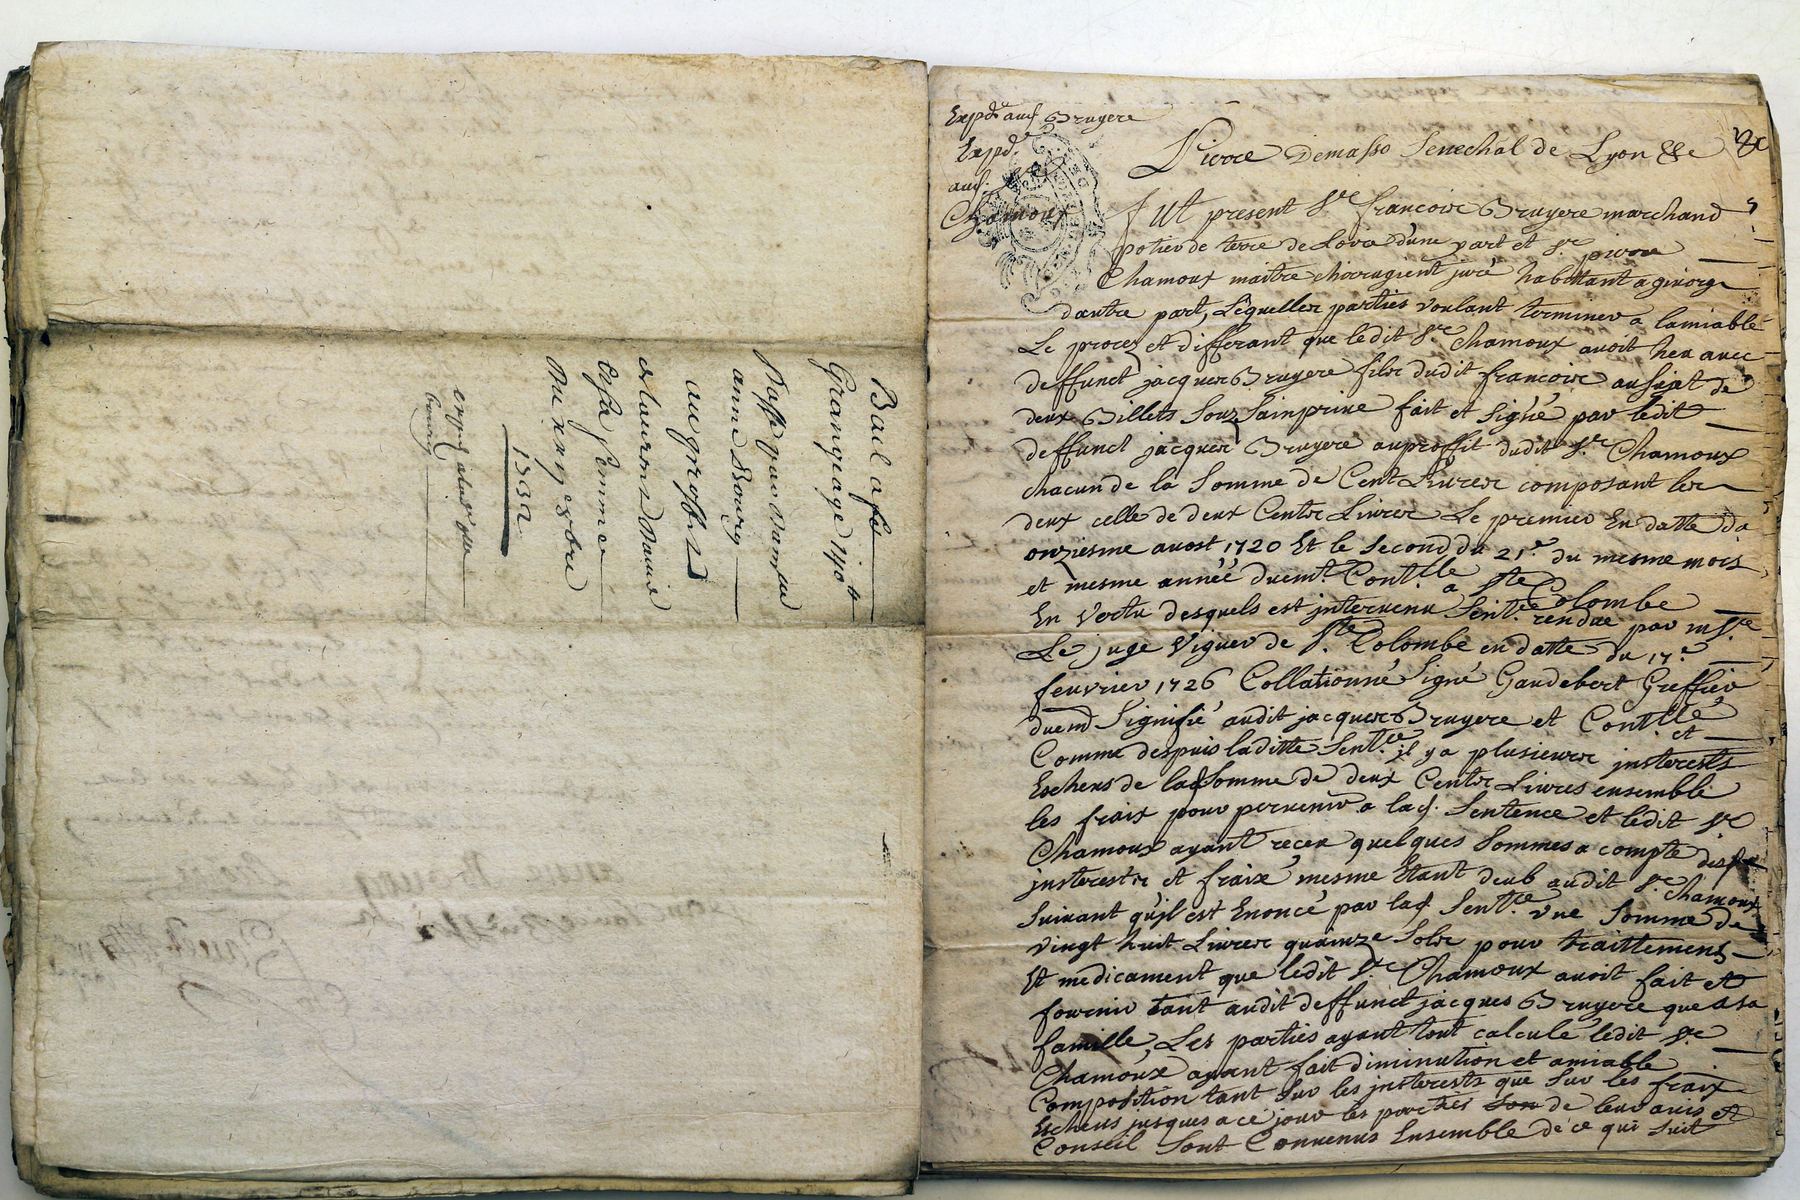 Bail a
Grangeage
anne Bourg
au
et laurens
sa femme
1732
Exped. aud. Bruyere
Exped.
aud. Sr
Chamoux
Pierre Demasso Senechal de Lyon &c
fut present Sr. francois Bruyere marchand
potier de terre de d'une part et Sr. pierre
Chamoux maitre chirrugient juré habittant a givors
dautre part, Lèquelles parties voulant terminer a lamiable
Le procez et differant que ledit Sr. Chamoux avoit heu avec
deffunct jacques Bruyere fils dudit francois au sujet de
deux Billets souz sainprive fait et signé par ledit
deffunct jacques Bruyere au proffit dudit Sr. Chamoux
chacun de la somme de Cent Livres composant les
deux celle de deux Cents Livres Le premier En datte du
onziesme avost 1720 Et le second du 21e. du mesme mois
et mesme année duemt. Contllé a Ste Colombe
En vertu desquels est intervenu Sentce rendue par mr.
Le juge Viguer de Ste. Colombe en datte du 17e.
fevrier 1726 Collationné Signé Gaudebert Greffier
duemt Signifié audit jacques Bruyere et Contllé et
Comme despuis laditte Sentce. il y a plusieurs insterests
Escheus de lad somme de deux Cents Livres ensemble
les fraix pour pervenir a lad. Sentence et ledit Sr
Chamoux ayant receu quelques sommes a compte desd
insterests et fraix mesme Etant deub audit Sr. Chamoux
suivant qu'jl est Enoncé par lad Sentce. vne somme de
vingt huit Livres quainze sols pour traittements
Et medicament que ledit Sr. Chamoux avoit fait et
fournir tant audit deffunct jacques Bruyere que a sa
famille, Les parties ayant tout calculé ledit Sr.
Chamoux ayant fait diminution et amiable
Composition tant sur les insterests que sur les fraix
Escheus jusques a ce jour les parties de leur avis et
Conseil sont Convenus Ensemble de ce qui suit